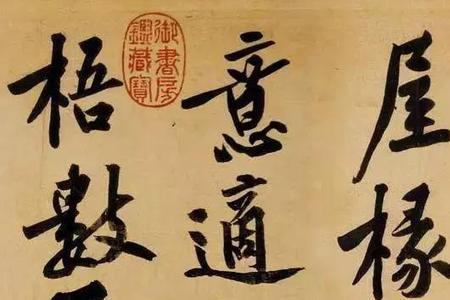 屋椽
意適
御書房
鑑藏寶
梧數